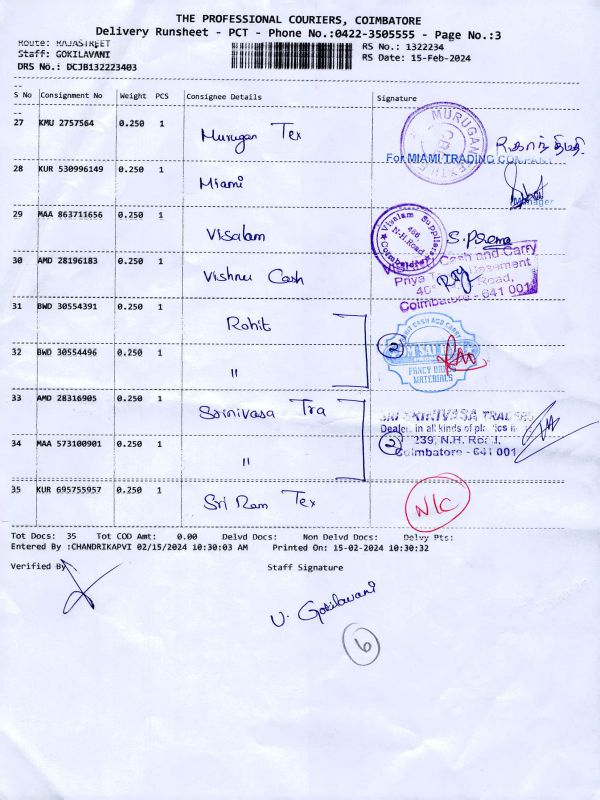 THE PROFESSIONAL COURIERS, COIMBATORE
Delivery Runsheet - PCT - Phone No.:0422-3505555 - Page No.:3
Route: RAJASTREET
Staff: GOKILAVANI
DRS No.: DCJB132223403
RS No.: 1322234
RS Date: 15-Feb-2024
S No Consignment No Weight PCS Consignee Details Signature
27 KMU 2757564 0.250 1 Murugan Tex
MURUGAN TEX
For MIAMI TRADING COMPANY
28 KUR 530996149 0.250 1 Miami
Manager
29 MAA 863711656 0.250 1 Visalam
Visalam Suppliers
486
N-H Road,
Coimbatore
S. Prema
30 AMD 28196183 0.250 1 Vishnu Cash
Cash and Carry
Priya Basement
Road,
Coimbatore - 641 001
31 BWD 30554391 0.250 1 Rohit
CASH AND CARRY
FANCY
MATERIALS
32 BWD 30554496 0.250 1 "
2
33 AMD 28316905 0.250 1 Srinivasa Tra
SRI SRINIVASA TRADERS
Dealers in all kinds of plastics
239, N.H. Road,
Coimbatore - 641 001
34 MAA 573100901 0.250 1 "
2
35 KUR 695755957 0.250 1 Sri Ram Tex
N/C
Tot Docs: 35 Tot COD Amt: 0.00 Delvd Docs: Non Delvd Docs: Delvy Pts:
Entered By :CHANDRIKAPVI 02/15/2024 10:30:03 AM Printed On: 15-02-2024 10:30:32
Verified By Staff Signature
V. Gokilavani
6